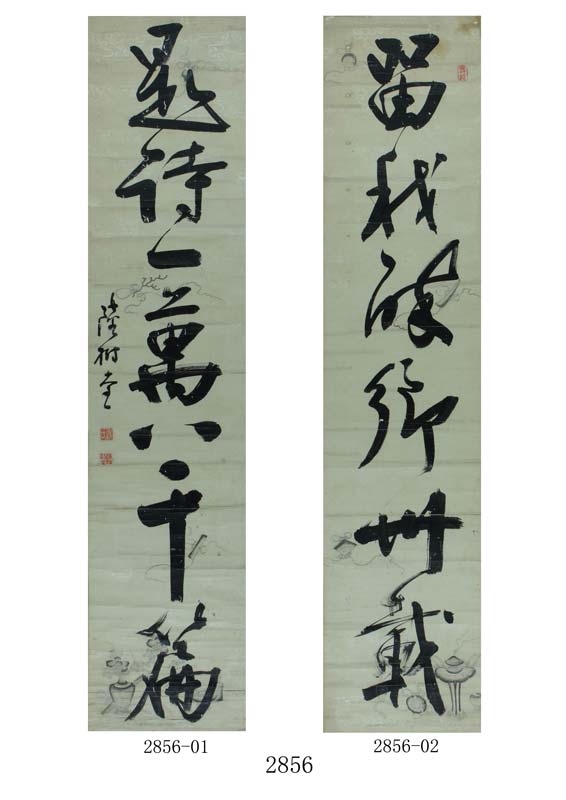 留我醉鄉卅載
題詩一萬八千篇
陸樹堂
2856-01
2856-02
2856